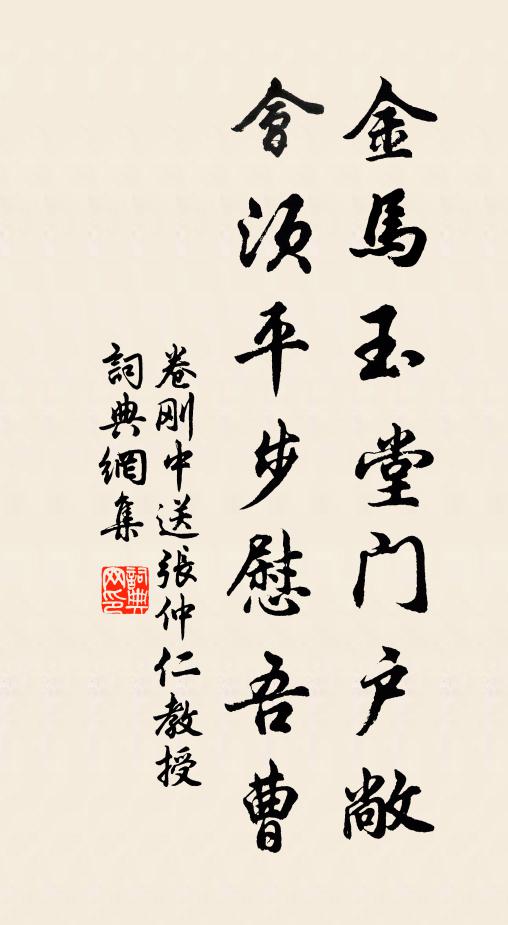 金馬玉堂門户敞
會須平步慰吾曹
卷剛中送張仲仁教授
詞典網集
詞典
网印